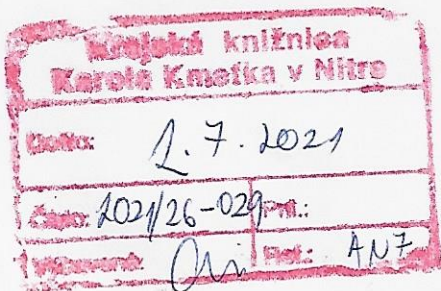 Krajská knižnica
Karola Kmeťka v Nitre
Došlo: 2.7.2021
Číslo: 2021/26-029 Pril.:
Vybavené: Ref.: AN7